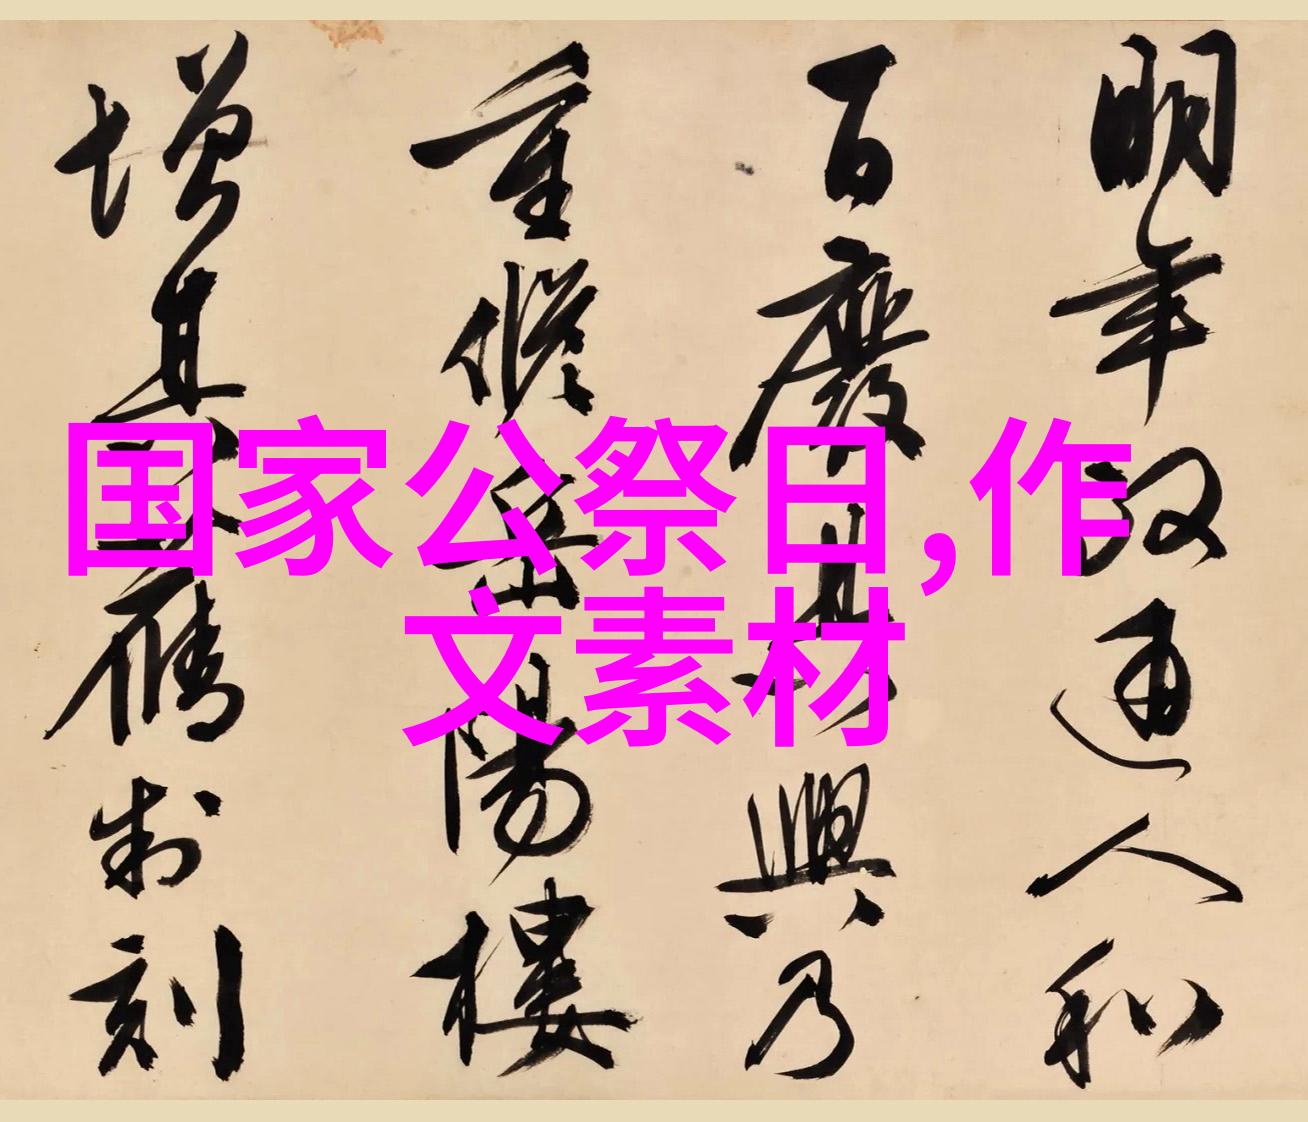 国家公祭日,作
文素材
明年政通人和
百廢具興乃
重脩岳陽樓
增其制刻